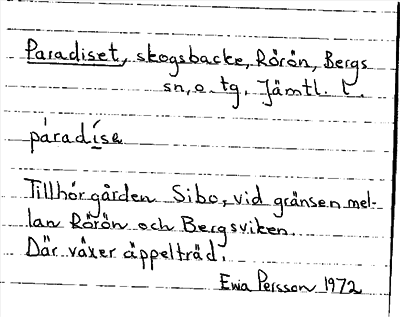 Paradiset, skogsbacke, Rörön, Bergs
sn, o. tg, Jämtl. l.
páradí̱sa
Tillhör gården Sibo, vid gränsen mel-
lan Rörön och Bergsviken.
Där växer äppelträd.
Ewa Persson 1972